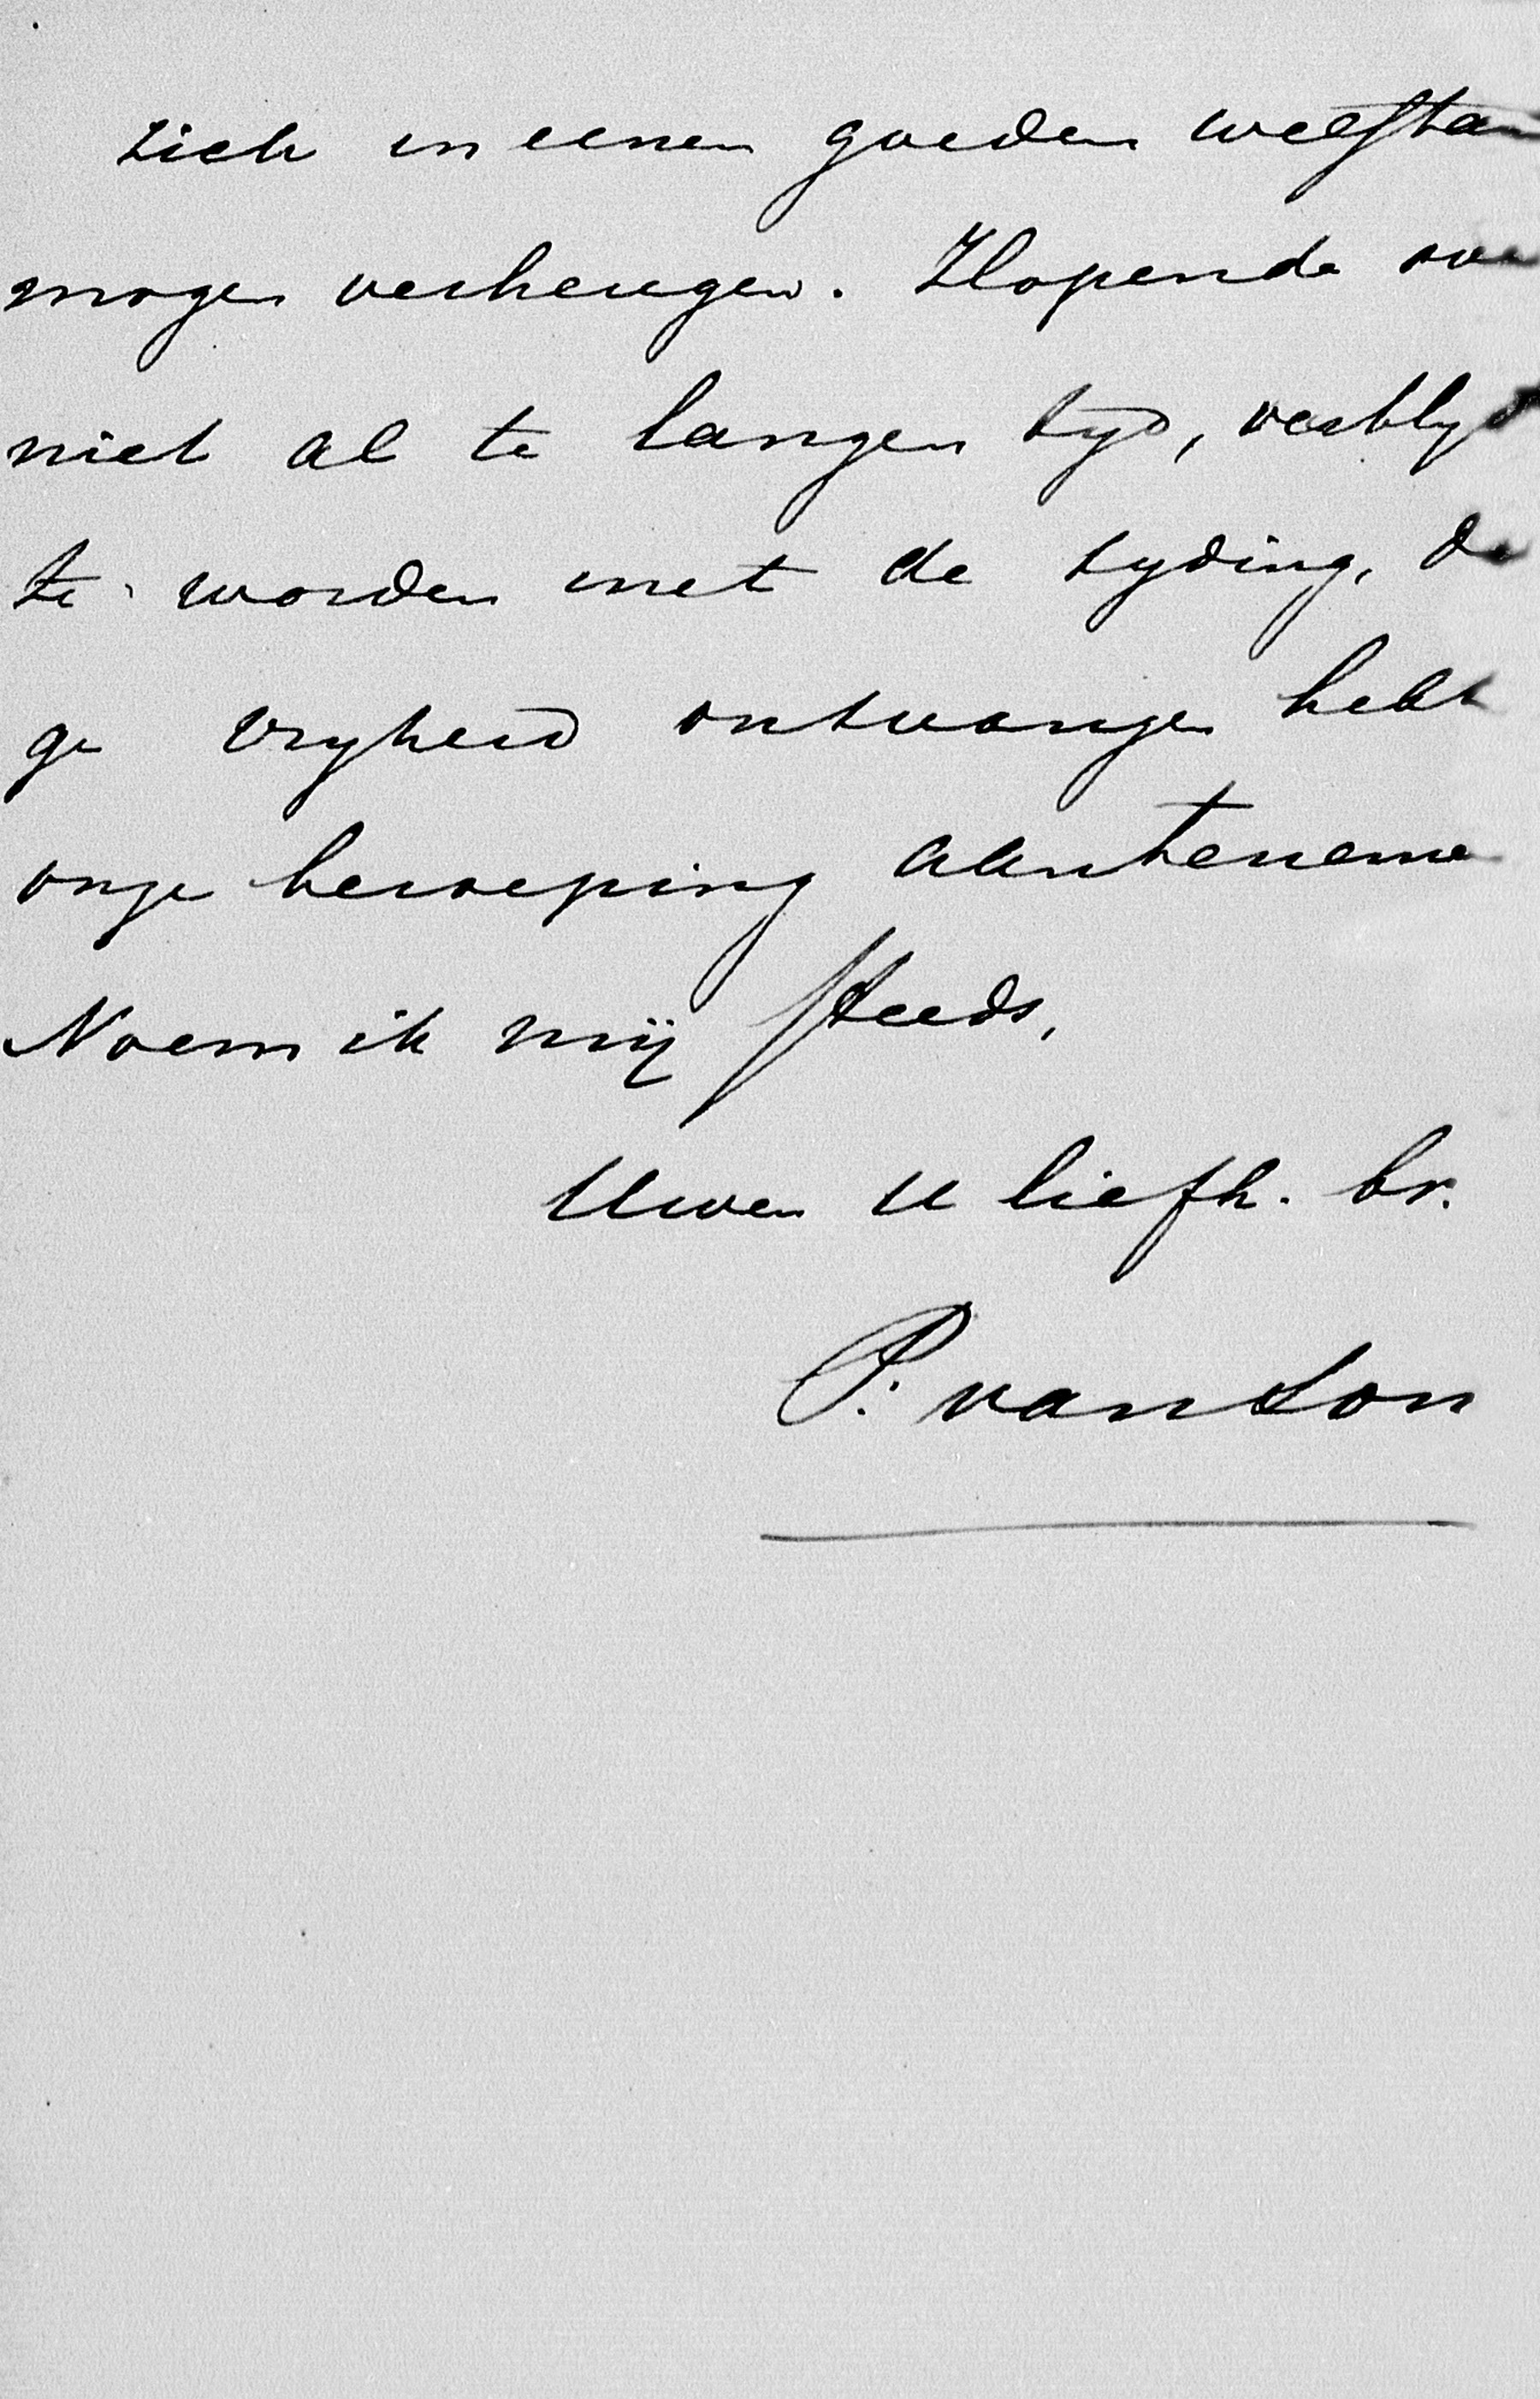 zich in eenen goeden welstan
mogen verheugen. Hopende ove
niet al te langen tyd, verblyd
te worden met de tyding, da
ge vryheid ontvangen hebt
onze beroeping aanteneme
Noem ik mij steeds,
Uwen U liefh. br.
P. van Son